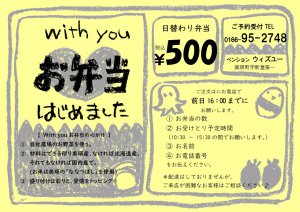 with you
お弁当
はじめました
【 With you お弁当の心がけ 】
① 自社農場のお野菜を使う。
② 材料はできる限り美瑛産、なければ北海道産、
それでもなければ国内産で。
(お米は美瑛の“ななつぼし”を使用)
③ 盛り付けは彩りと、愛情をトッピング♡
日替わり弁当
税込
¥500
ご予約受付 TEL
0166-95-2748
ペンション ウィズユー
美瑛町字新星第一
ご注文はお電話で
前日 16:00までに
お願いします。
① お弁当の数
② お受けとり予定時間
(10:30 ～ 15:30 の間でお願いします。)
③ お名前
④ お電話番号
をお伝えください。
*配達はしておりませんが、
ご来店が困難なお客様はご相談ください♪